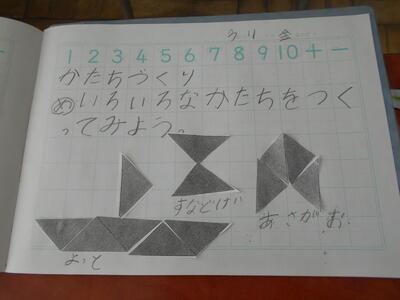 1 2 3 4 5 6 7 8 9 10 + −
かたちづくり
め いろいろなかたちをつく
ってみよう。
すなどけい
あさがお
よっと